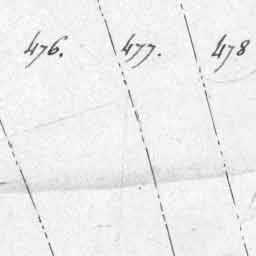 476. 477. 478